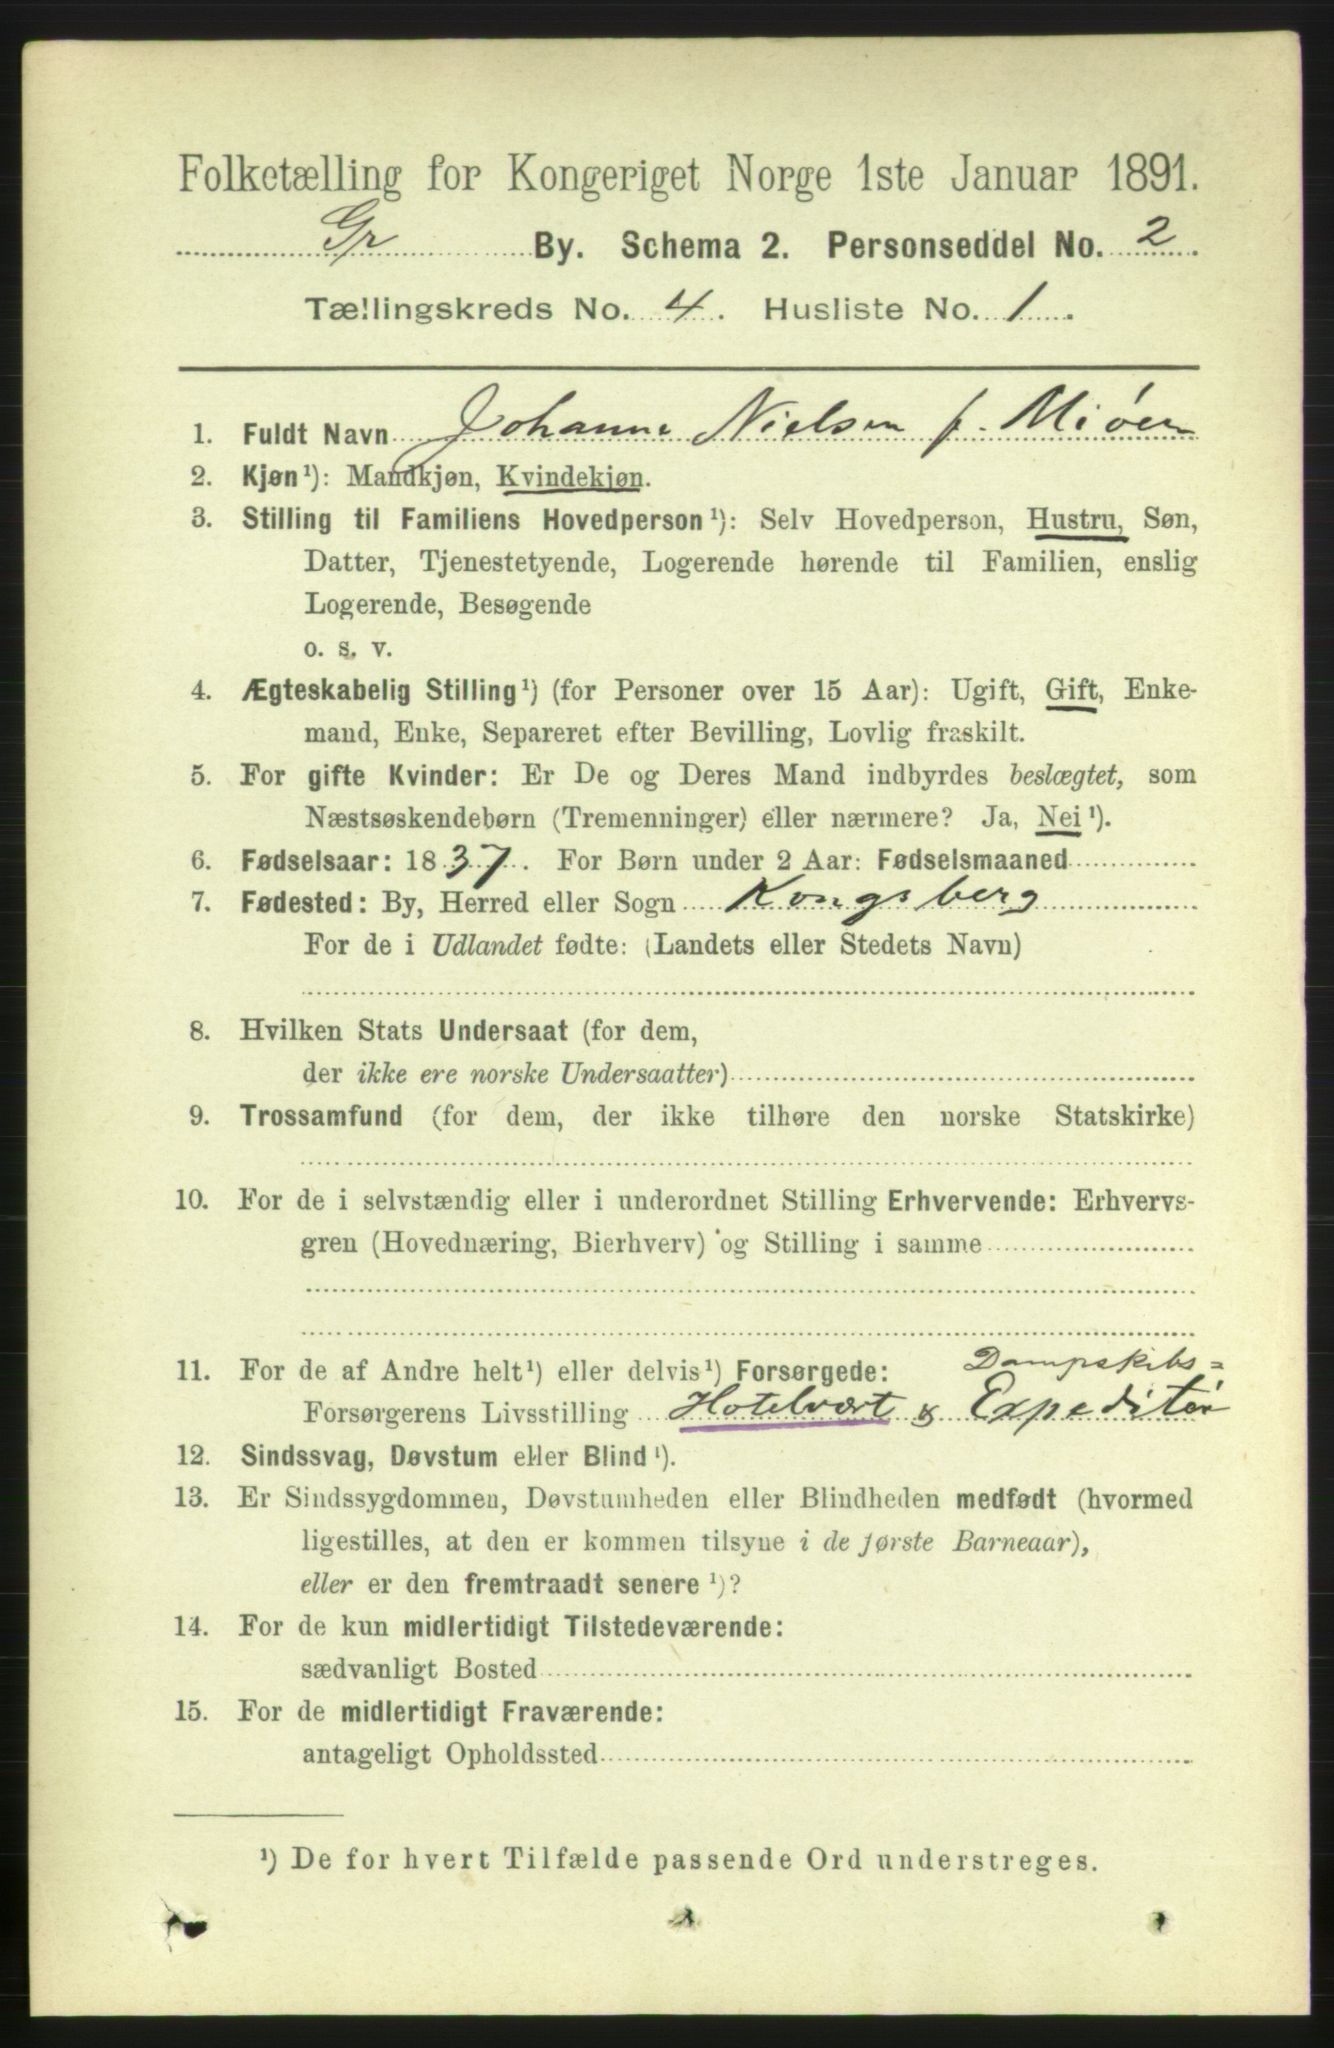 Folketælling for Kongeriget Norge 1ste Januar 1891.
Gr By. Schema 2. Personseddel No. 2.
Tællingskreds No. 4. Husliste No. 1.
1. Fuldt Navn Johanne Nielsen f. Miøen
2. Kjøn¹): Mandkjøn, Kvindekjøn.
3. Stilling til Familiens Hovedperson¹): Selv Hovedperson, Hustru, Søn,
Datter, Tjenestetyende, Logerende hørende til Familien, enslig
Logerende, Besøgende
o. s. v.
4. Ægteskabelig Stilling¹) (for Personer over 15 Aar): Ugift, Gift, Enke-
mand, Enke, Separeret efter Bevilling, Lovlig fraskilt.
5. For gifte Kvinder: Er De og Deres Mand indbyrdes beslægtet, som
Næstsøskendebørn (Tremenninger) eller nærmere? Ja, Nei¹).
6. Fødselsaar: 1837. For Børn under 2 Aar: Fødselsmaaned
7. Fødested: By, Herred eller Sogn Kongsberg
For de i Udlandet fødte: (Landets eller Stedets Navn)
8. Hvilken Stats Undersaat (for dem,
der ikke ere norske Undersaatter)
9. Trossamfund (for dem, der ikke tilhøre den norske Statskirke)
10. For de i selvstændig eller i underordnet Stilling Erhvervende: Erhvervs-
gren (Hovednæring, Bierhverv) og Stilling i samme
11. For de af Andre helt¹) eller delvis¹) Forsørgede: Dampskibs=
Forsørgerens Livsstilling Hotelvært & Expeditør
12. Sindssvag, Døvstum eller Blind¹).
13. Er Sindssygdommen, Døvstumheden eller Blindheden medfødt (hvormed
ligestilles, at den er kommen tilsyne i de første Barneaar),
eller er den fremtraadt senere¹)?
14. For de kun midlertidigt Tilstedeværende:
sædvanligt Bosted
15. For de midlertidigt Fraværende:
antageligt Opholdssted
¹) De for hvert Tilfælde passende Ord understreges.